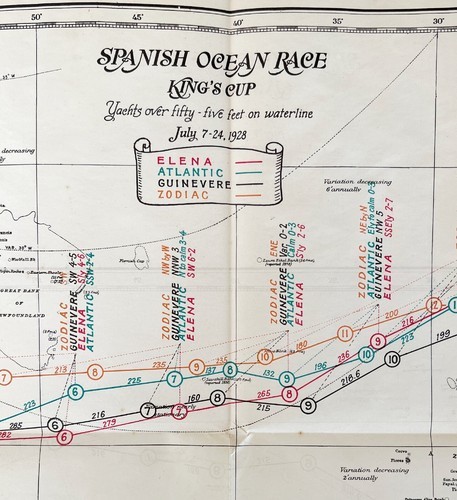 50' 45' 40' 35' 30'
SPANISH OCEAN RACE
KING'S CUP
Yachts over fifty-five feet on waterline
July, 7-24, 1928
ELENA
ATLANTIC
GUINEVERE
ZODIAC
decreasing
Variation decreasing
6' annually
ZODIAC SW
GUINEVERE SW 4-5
ELENA S'ly 4-6
ATLANTIC SSW 2-4
ZODIAC NW by W
GUINEVERE NNW 3
ATLANTIC calm 3-4
ELENA SW 6-2
ZODIAC ENE
GUINEVERE Var. 0-2
ATLANTIC Calm 0-3
ELENA S'ly 2-6
ZODIAC NE by N
ATLANTIC E'ly to calm 0-3
GUINEVERE NW 5
ELENA SSE'ly 2-7
GREAT BANK
OF
NEWFOUNDLAND
12 200
11 216 199
10 180 236 9 10 11
7 213 8 235 9 137 8 132 9 196 10 218.6
223 6 225 7 160 8 265 8 9
285 5 216 7 7 215
282 6 279
Corvo
Flores
Variation decreasing
2' annually